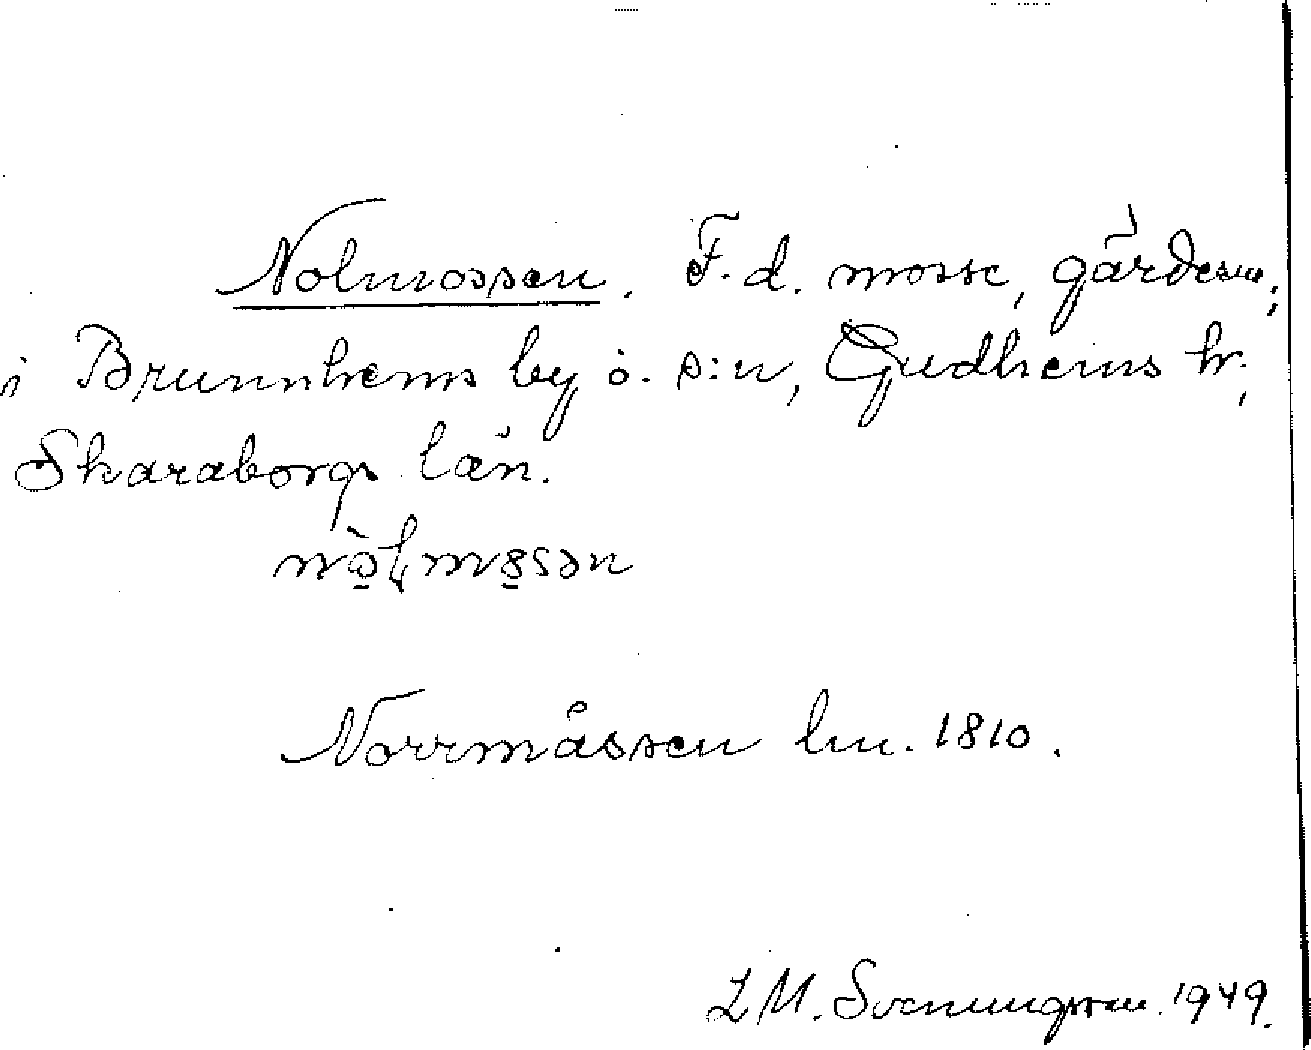 Nolmossen. F. d. mosse, gärdesn;
i Brunnhems by o. s:n, Gudhems hr,
Skaraborgs län.
Norrmåssen lm. 1810.
L M. Svenungsson 1949.